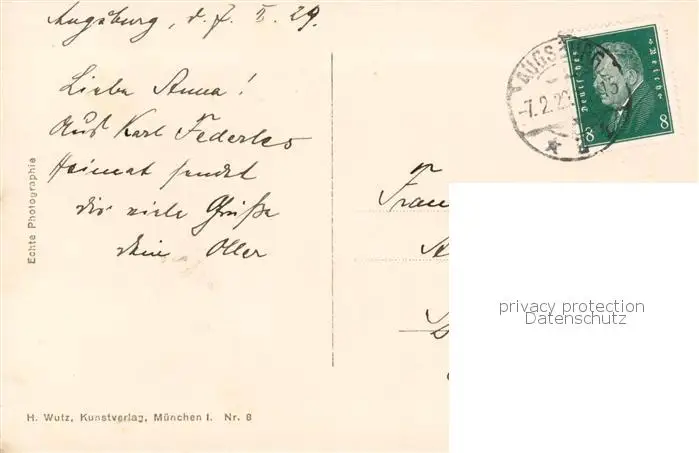 Augsburg, d. 7. II. 29.
Liebe Anna!
Aus Karl Federles
Heimat sendet
dir viele Grüße
dein Otter
Frau
Echte Photographie
H. Wutz, Kunstverlag, München I. Nr. 8
AUGSBURG
-7.2.29
Deutsches Reich
8 8
privacy protection
Datenschutz